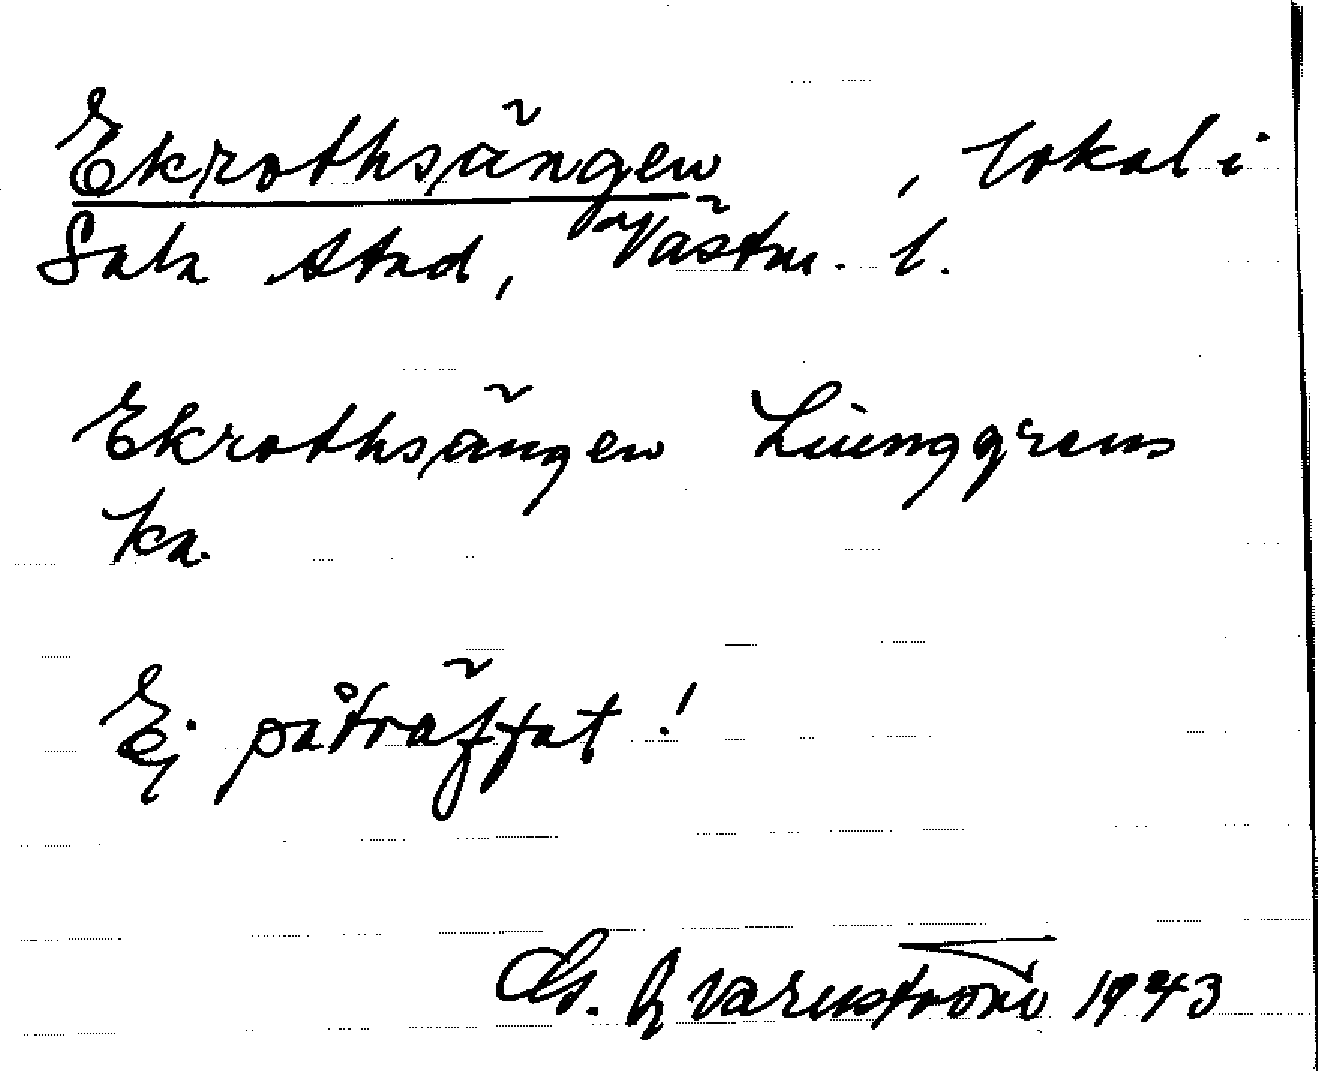 Ekrothsängen, lokal i
Sala stad, Västm. l.
Ekrothsängen Liunggrens
ka.
Ej påträffat!
Qvarnström 1943